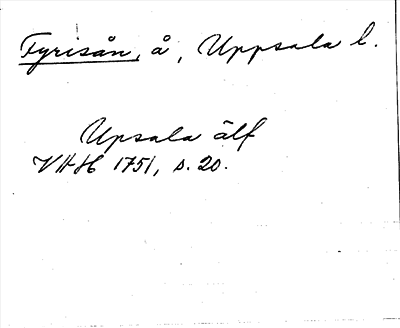 Fyrisån, å, Uppsala l.
Upsala älf
VHH 1751, s. 20.